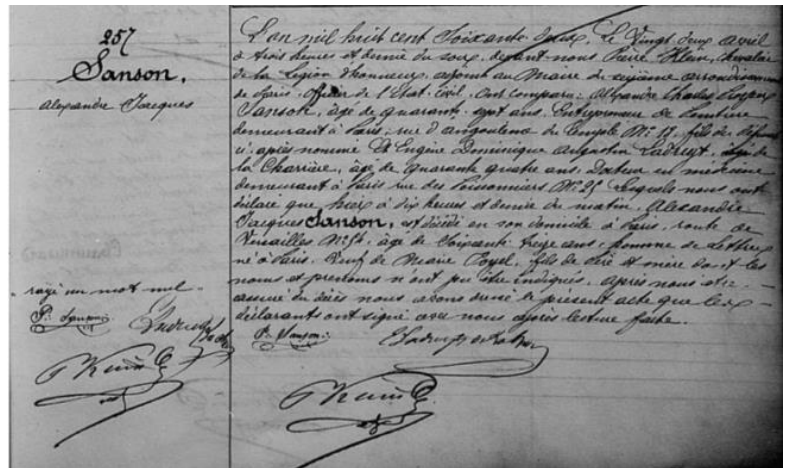 257
Sanson,
Alexandre Jacques
rayé un mot nul
P. Sanson
L'an mil huit cent soixante deux, le vingt deux avril
à trois heures et demie du soir, devant nous Pierre Klein, chevalier
de la Légion d'honneur, adjoint au Maire du seizième arrondissement
de Paris, officier de l'état civil, ont comparu: Alexandre Charles
Sanson, âgé de quarante sept ans, Entrepreneur de Peinture
demeurant à Paris, rue d'angoulème du Temple No 18, fils du défunt
ci après nommé Et Eugène Dominique Augustin Ladreyt, de
la Charrière, âgé de quarante quatre ans, Docteur en médecine
demeurant à Paris rue des Poissonniers No 25 Lesquels nous ont
déclaré que hier à dix heures et demie du matin, Alexandre
Jacques Sanson, est décédé en son domicile à Paris, route de
Versailles No 54, âgé de soixante treize ans, homme de Lettres
né à Paris, Veuf de Marie, fils de père et mère dont les
noms et prénoms n'ont pu être indiqués. Après nous être
assuré du décès nous avons dressé le présent acte que les
déclarants ont signé avec nous après lecture faite.
P. Sanson